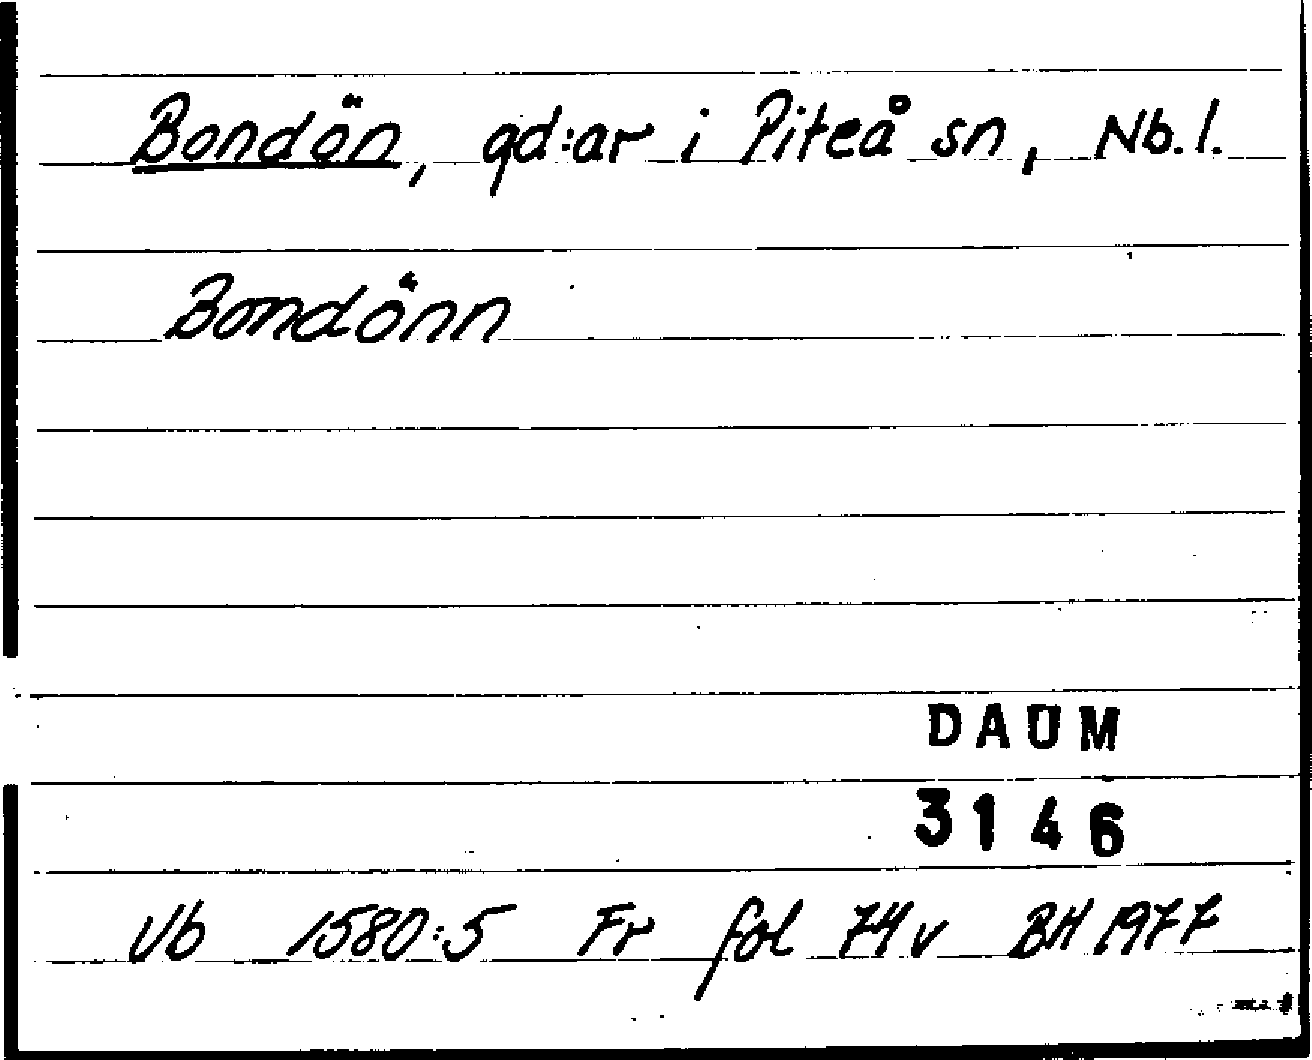 Bondön, gd:ar i Piteå sn, Nb.l.
Bondönn
DAUM
3146
Vb 1580:5 Fr fol 74v BH 1977